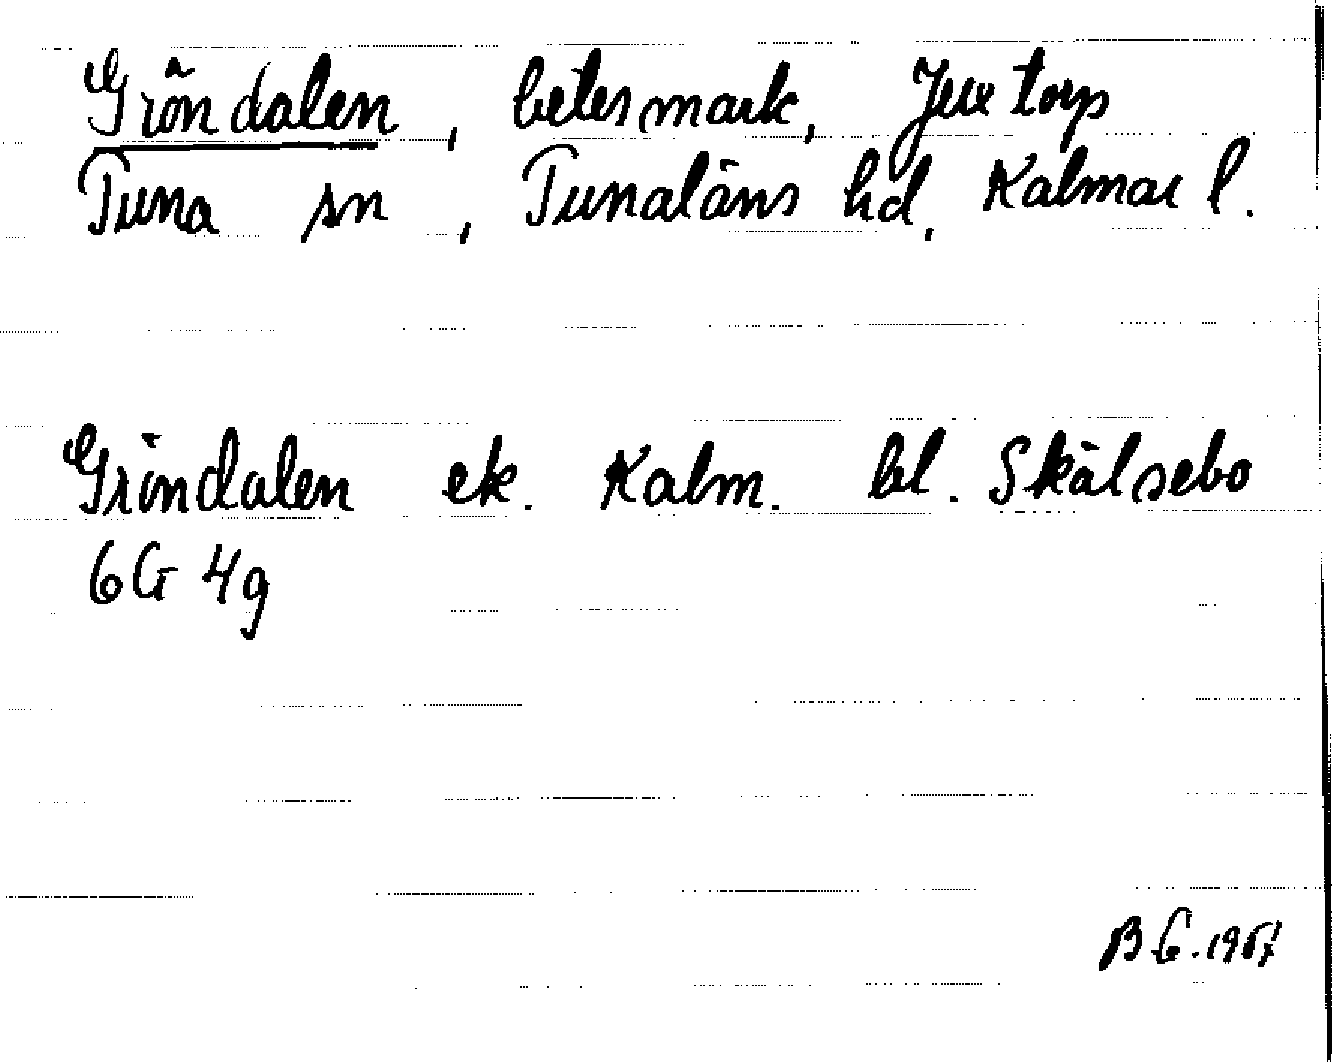 Gröndalen, betesmark, Juxtorp
Tuna sn, Tunaläns hd, Kalmar l.
Gröndalen ek. Kalm. bl. Skälsebo
6G 4g
BG. 1967